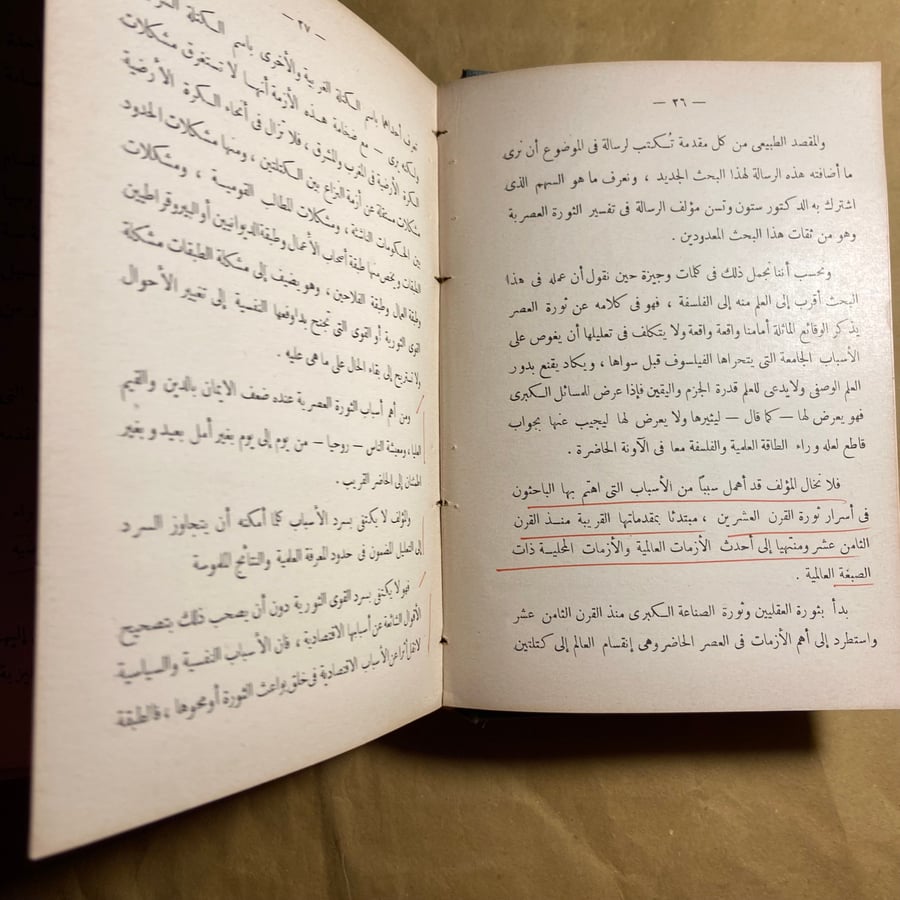 — ٣٦ —
والمقصد الطبيعى من كل مقدمة تُكتب لرسالة فى الموضوع أن نرى
ما أضافته هذه الرسالة لهذا البحث الجديد ، ونعرف ما هو السهم الذى
اشترك به الدكتور ستون وتسن مؤلف الرسالة فى تفسير الثورة العصرية
وهو من ثقات هذا البحث المعدودين .
ونحسب أننا نجمل ذلك فى كلمات وجيزة حين نقول أن عمله فى هذا
البحث أقرب إلى العلم منه إلى الفلسفة ، فهو فى كلامه عن ثورة العصر
يذكر الوقائع الماثلة أمامنا واقعة واقعة ولا يتكلف فى تعليلها أن يغوص على
الأسباب الجامعة التى يتحراها الفيلسوف قبل سواها ، ويكاد يقنع بدور
العلم الوصفى ولا يدعى للعلم قدرة الجزم واليقين فإذا عرض للمسائل الكبرى
فهو يعرض لها — كما قال — ليثيرها ولا يعرض لها ليجيب عنها بجواب
قاطع لعله وراء الطاقة العلمية والفلسفة معا فى الآونة الحاضرة .
فلا نخال المؤلف قد أهمل سببًا من الأسباب التى اهتم بها الباحثون
فى أسرار ثورة القرن العشرين ، مبتدئا بمقدماتها القريبة منذ القرن
الثامن عشر ومنتهيا إلى أحدث الأزمات العالمية والأزمات المحلية ذات
الصبغة العالمية .
بدأ بثورة العقليين وثورة الصناعة الكبرى منذ القرن الثامن عشر
واستطرد إلى أهم الأزمات فى العصر الحاضر وهى إنقسام العالم إلى كتلتين
— ٣٧ —
تعرف أحداها باسم الكتلة الغربية والأخرى باسم الكتلة
ولكنه يرى — مع ضخامة هذه الأزمة أنها لا تستغرق مشكلات
الكرة الأرضية فى المغرب والمشرق ، فلا تزال فى أنحاء الكرة الأرضية
مشكلات مستقلة عن أزمة النزاع بين الكتلتين ، ومنها مشكلات الحدود
بين الحكومات الناشئة ، ومشكلات المطالب القومية ، ومشكلات
الطبقات ويخص منها طبقة أصحاب الأعمال وطبقة الديوانيين أو البيروقراطيين
وطبقة العمال وطبقة الفلاحين ، وهو يضيف إلى مشكلة الطبقات مشكلة
القوى الثورية أو القوى التى تجنح بدوافعها النفسية إلى تغيير الأحوال
ولا تستريح إلى بقاء الحال على ما هى عليه .
ومن أهم أسباب الثورة العصرية عنده ضعف الايمان بالدين والقيم
العليا ، ومعيشة الناس — روحيا — من يوم إلى يوم بغير أمل بعيد وبغير
اطمئنان إلى الحاضر القريب .
والمؤلف لا يكتفى بسرد الأسباب كلما أمكنه أن يتجاوز السرد
إلى التعليل المضمون فى حدود المعرفة العلمية والنتائج الملموسة
فهو لا يكتفى بسرد القوى الثورية دون أن يصحب ذلك بتصحيح
الأقوال الشائعة عن أسبابها الاقتصادية ، فان الأسباب النفسية والسياسية
لا تقل أثرا عن الأسباب الاقتصادية فى خلق بواعث الثورة أو محوها ، فالطبقة